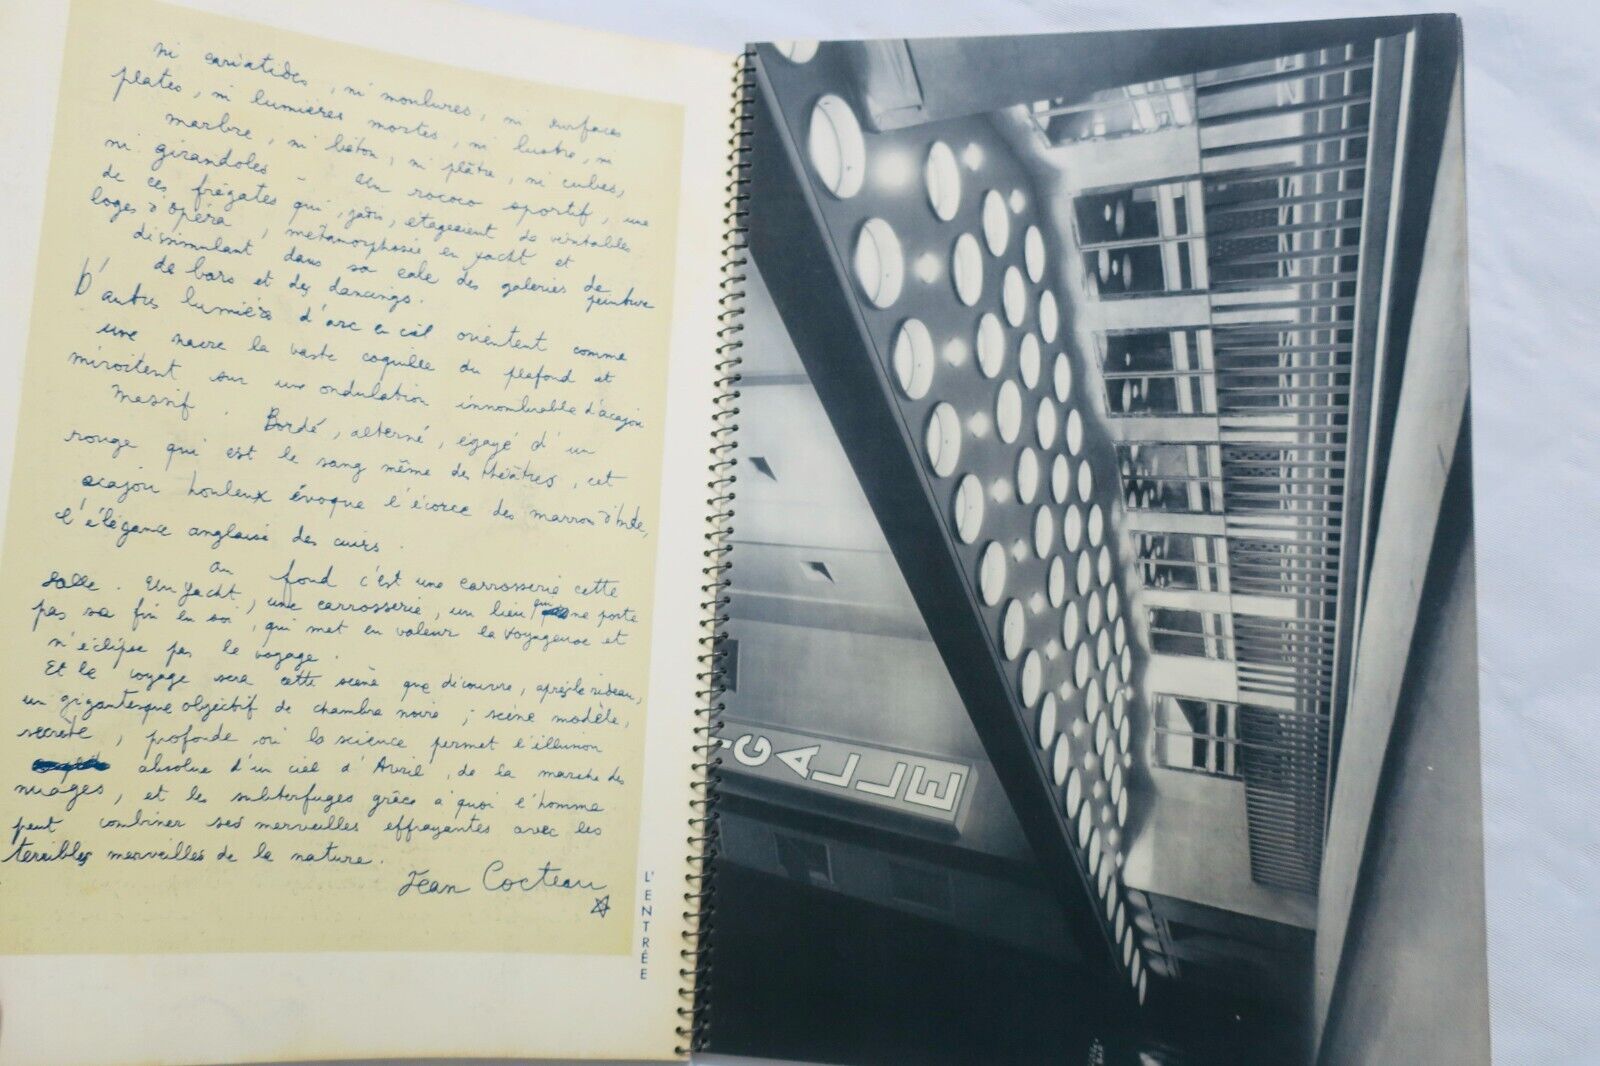 ni cariatides, ni moulures, ni surfaces
plates, ni lumières mortes, ni lustre, ni
marbre, ni béton, ni plâtre, ni cubes,
ni girandoles – Un rococo sportif, une
de ces frégates qui, jadis, etageaient de véritables
loges d'opéra, métamorphosée en yacht et
dissimulant dans sa cale des galeries de peinture
de bars et des dancings.
D'autres lumières d'arc en ciel orientent comme
une nacre la vaste coquille du plafond et
miroitent sur une ondulation innombrable d'acajou
massif. Bordé, alterné, égayé d'un
rouge qui est le sang même des théâtres, cet
acajou houleux évoque l'écorce des marrons d'Inde,
l'élégance anglaise des cuirs.
Au fond c'est une carrosserie cette
salle. Un yacht, une carrosserie, un lieu qui ne porte
pas sa fin en soi, qui met en valeur la voyageuse et
n'éclipse pas le voyage.
Et le voyage sera cette scène que découvre, après le rideau,
un gigantesque objectif de chambre noire ; scène modèle,
secrète, profonde où la science permet l'illusion
absolue d'un ciel d'Avril, de la marche des
nuages, et les subterfuges grâce à quoi l'homme
peut combiner ses merveilles effrayantes avec les
terribles merveilles de la nature.
Jean Cocteau
L'ENTRÉE
IGALLE